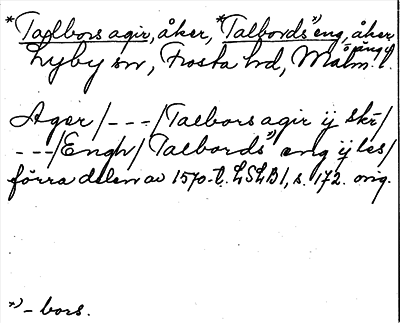 *Taelbors agir, åker, *Talbords*) eng, åker
o äng
Lyby sn, Frosta hd, Malm. l.
Ager/---/Taelbors agir ij skr/
---/Engh/Talbords*) eng ij les/
förra delen av 1570-t. LSLB1, s. 172. orig.
*) - bors.